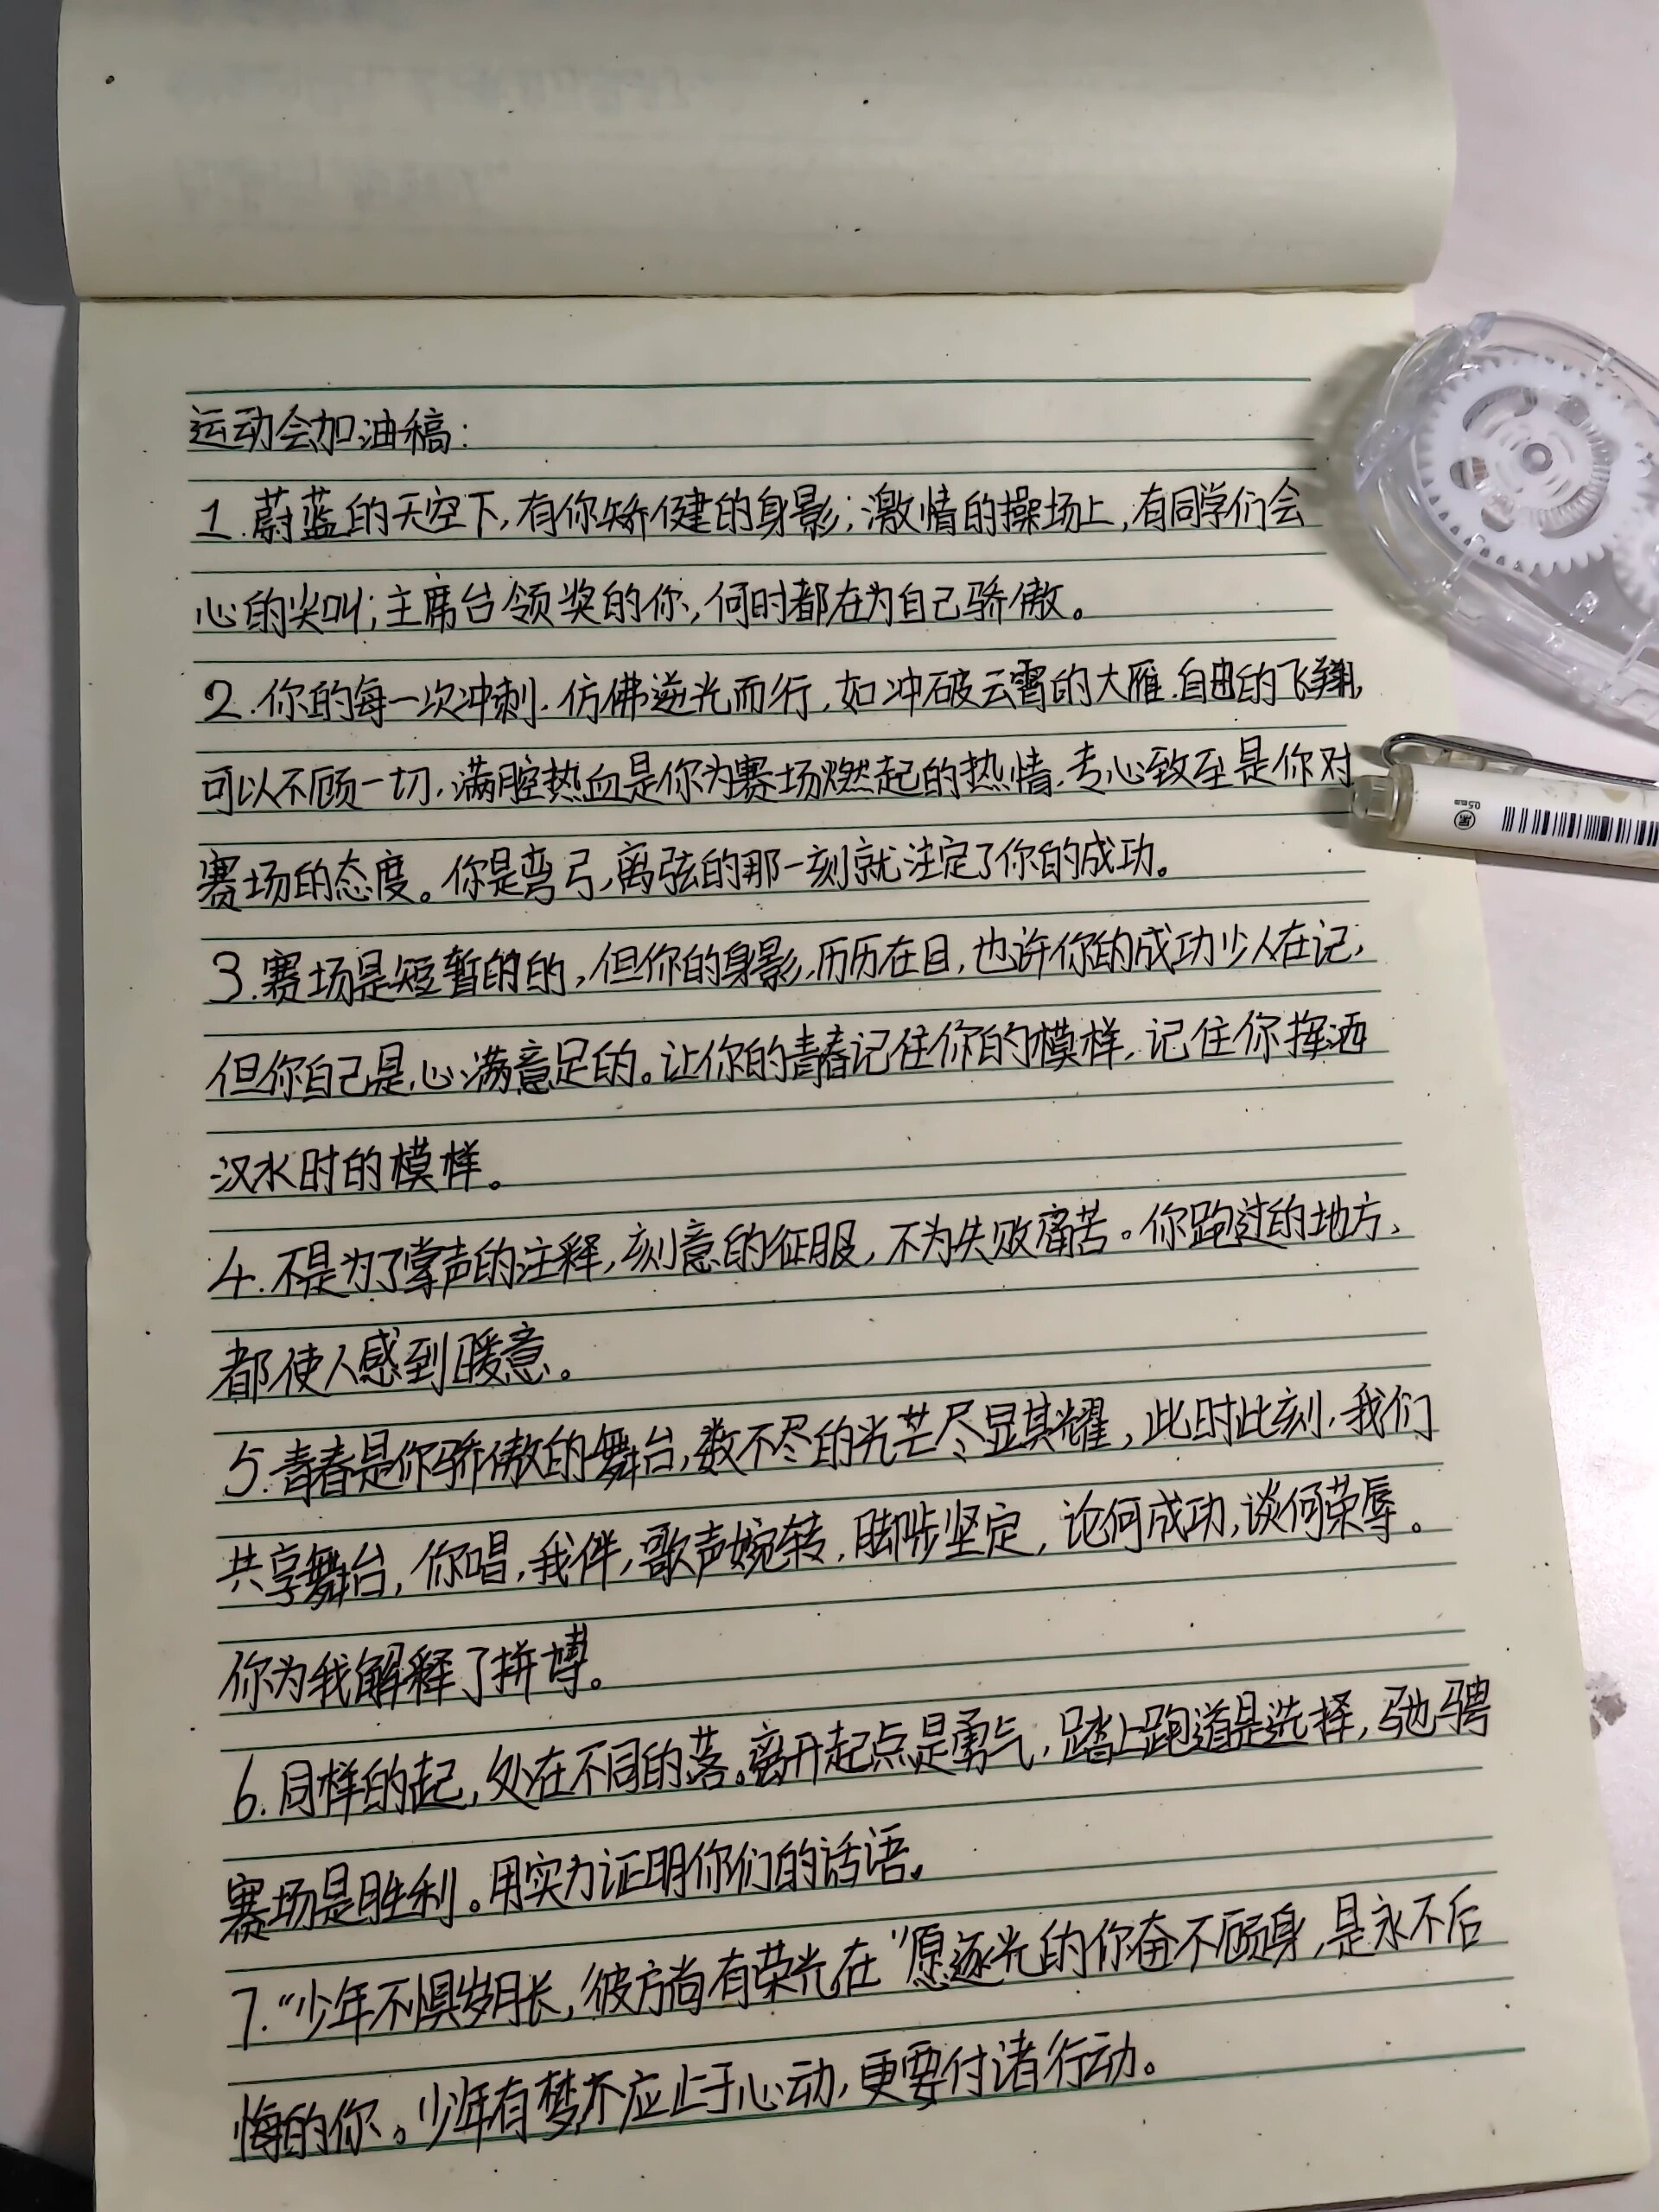 运动会加油稿：
1.蔚蓝的天空下，有你矫健的身影；激情的操场上，有同学们会
心的尖叫；主席台领奖的你，何时都在为自己骄傲。
2.你的每一次冲刺.仿佛逆光而行，如冲破云霄的大雁.自由的飞翔，
可以不顾一切，满腔热血是你为赛场燃起的热情.专心致至是你对
赛场的态度。你是弯弓，离弦的那一刻就注定了你的成功。
3.赛场是短暂的的，但你的身影，历历在目，也许你的成功少人在记，
但你自己是心满意足的。让你的青春记住你的模样，记住你挥洒
汉水时的模样。
4.不是为了掌声的注释，刻意的征服，不为失败痛苦。你跑过的地方、
都使人感到暖意。
5.青春是你骄傲的舞台，数不尽的光芒尽显其耀，此时此刻，我们
共享舞台，你唱，我伴，歌声婉转，脚步坚定，论何成功，谈何荣辱。
你为我解释了拼博。
6.同样的起，处在不同的落。离开起点是勇气，踏上跑道是选择，驰骋
赛场是胜利。用实力证明你们的话语。
7.“少年不惧岁月长，彼方尚有荣光在”愿逐光的你奋不顾身，是永不后
悔的你。少年有梦不应止于心动，更要付诸行动。
0.5mm
黑